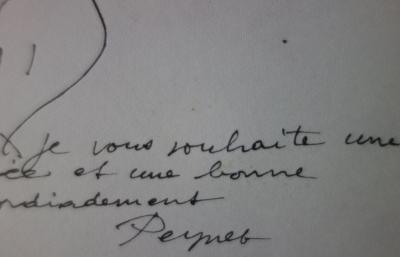 je vous souhaite une
ée et une bonne
ordialement
Peynet